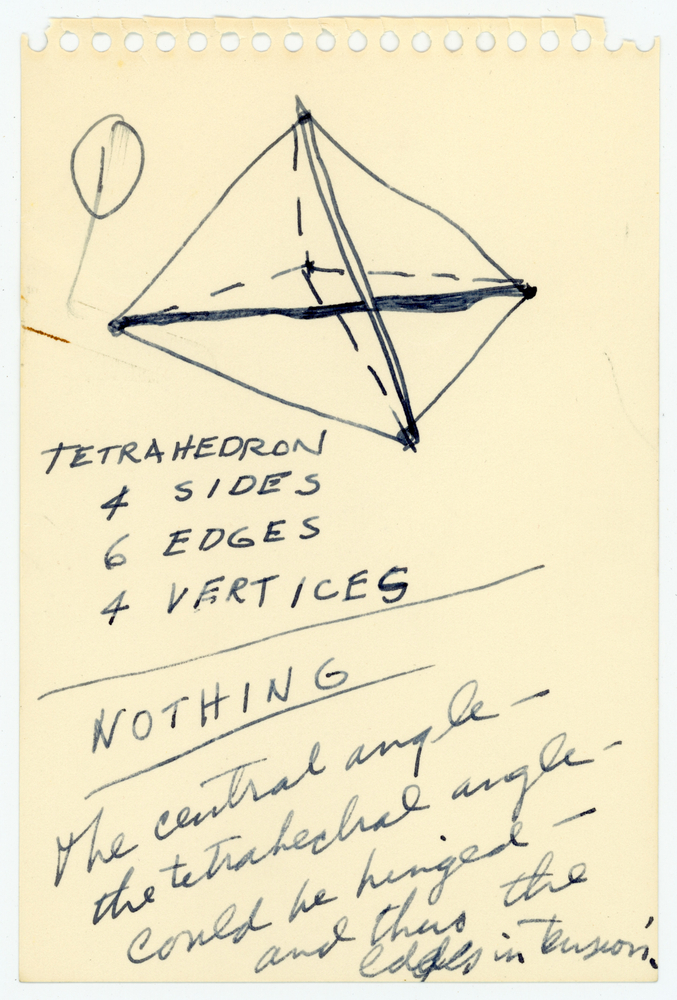 TETRAHEDRON
4 SIDES
6 EDGES
4 VERTICES
NOTHING
The central angle —
the tetrahedral angle —
could be hinged —
and thus the
edges in tension.